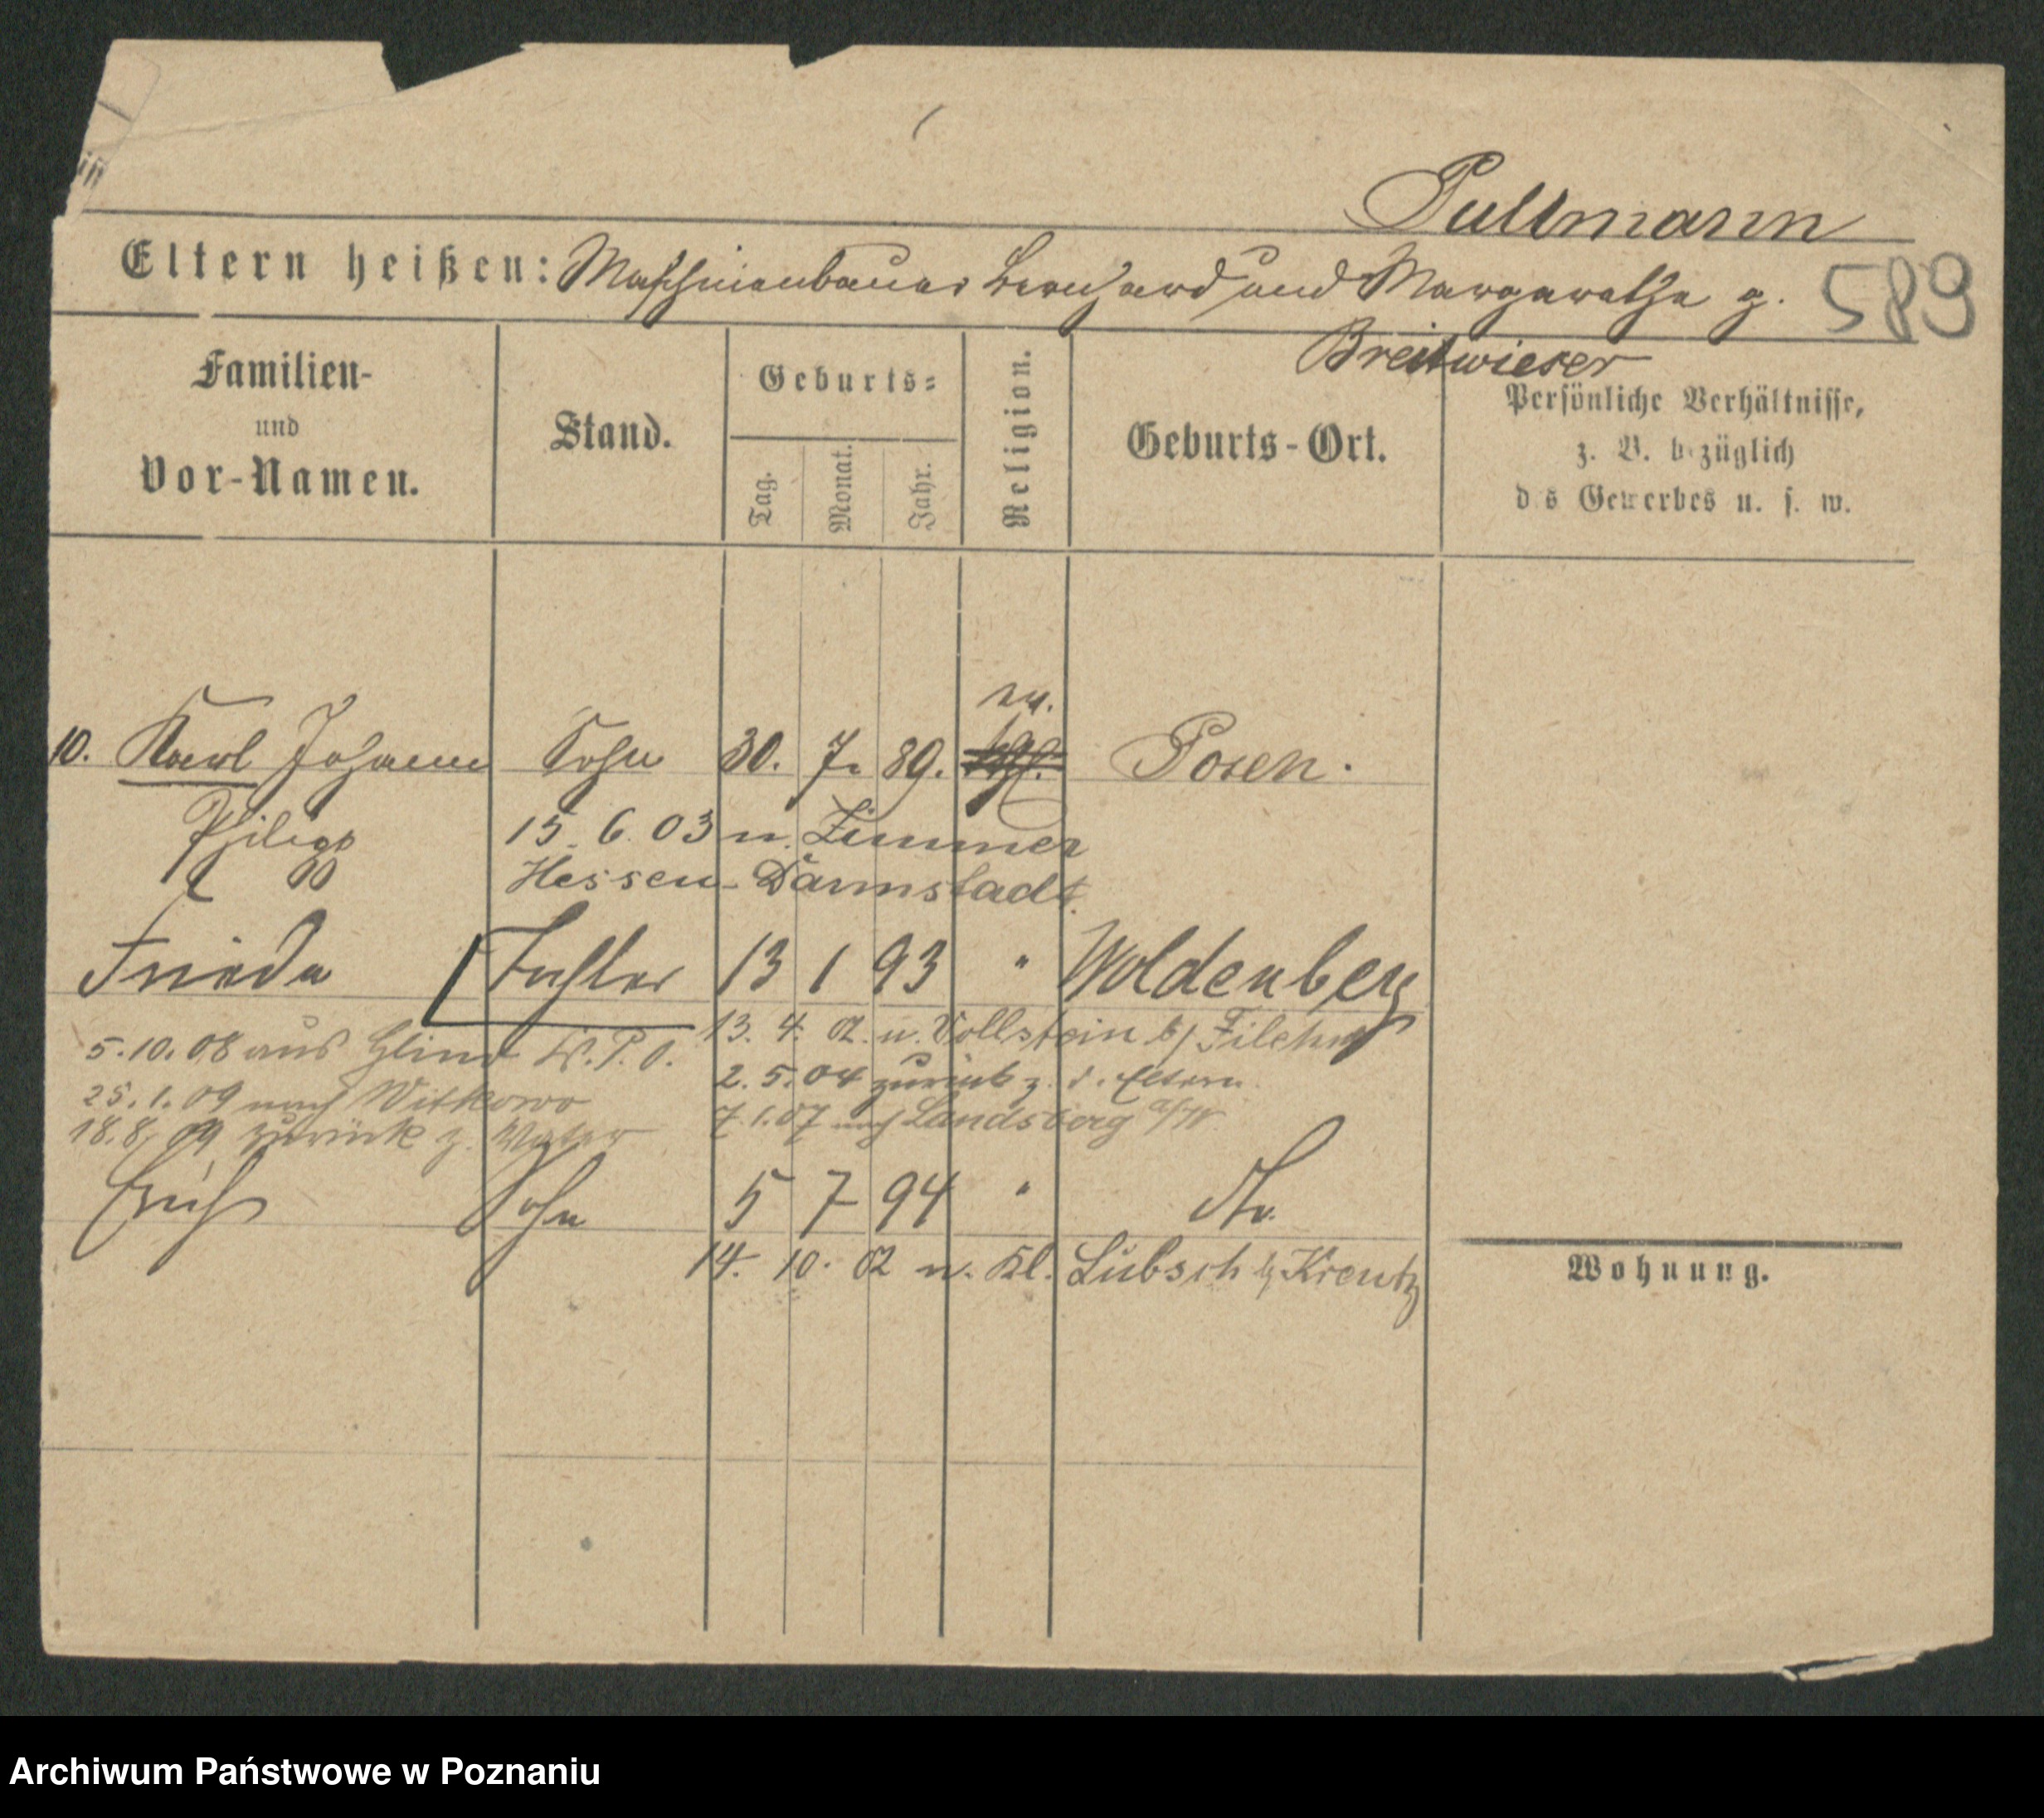 Pullmann
Eltern heißen: Maschinenbauer Bernhard und Margarethe g.
589
Breitwieser
Familien-
und
Vor-Namen.
Stand.
Geburts-
Tag.
Monat.
Jahr.
Religion.
Geburts-Ort.
Persönliche Verhältnisse,
z. B. bezüglich
d s Gewerbes u. s. w.
ev.
10. Karl Johann Sohn 30. 7. 89. Posen.
Philipp
15. 6. 03 n. Zimmer
Hessen-Darmstadt.
Frieda Tochter 13 1 93 " Woldenberg
13. 4. 02. n. Vollstein b/ Filehne
5. 10. 08 aus W. P. O.
2. 5. 04 zurück z. d. Eltern.
25. 1. 09 nach Witkowo
7. 1. 07 nach Landsberg a/W
18. 8. 09 zurück z. Vater
Erich Sohn 5 7 94 "
14. 10. 02 n. Kl. Lübsch b/ Kreutz
Wohnung.
Archiwum Państwowe w Poznaniu